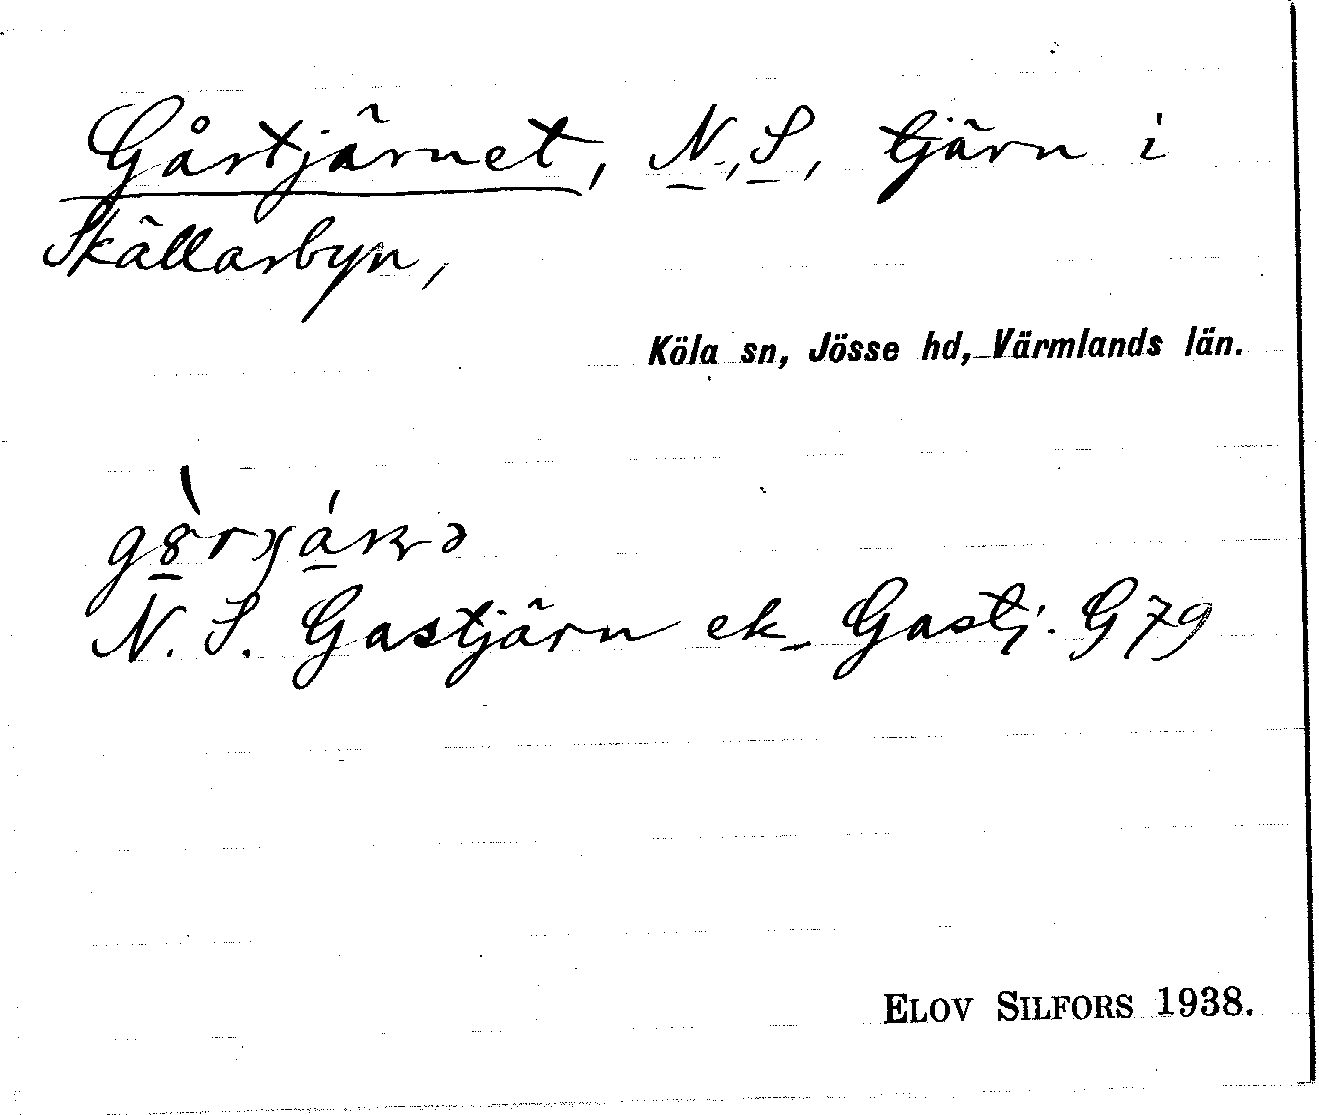 Gårtjärnet, N., S., tjärn i
Skällarbyn,
Köla sn, Jösse hd, Värmlands län.
N. S. Gastjärn ek. Gastj. G 79
ELOV SILFORS 1938.